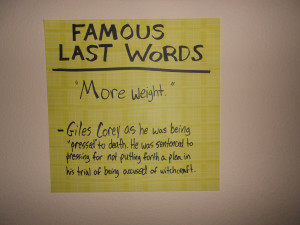 FAMOUS
LAST WORDS
"More weight."
- Giles Corey as he was being
"pressed" to death. He was sentenced to
pressing for not putting forth a plea in
his trial of being accused of witchcraft.